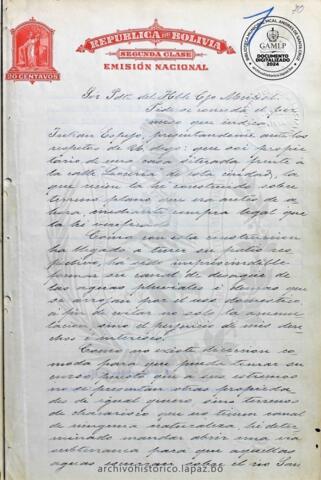 REPÚBLICA DE BOLIVIA
SEGUNDA CLASE
EMISIÓN NACIONAL
20 CENTAVOS
GAMLP
DOCUMENTO
DIGITALIZADO
2024
archivohistorico.lapaz.bo
Sor Pdte. del Hble Cjo Municipal.
Pide se conceda el per
miso que indica.
Julian Espejo, presentandome ante los
respetos de Ud. digo: que soi propie
tario de una casa situada frente á
la calle de esta ciudad, la
que recien la he construido sobre
terreno plano que era antes de
mediante compra legal que
la he
Como con esta construccion
ha llegado a tener un patio res
pectivo, ha sido imprescindible
formar un canal de desague de
las aguas pluviales i demas que
se arrojan por el uso domestico
á fin de evitar no solo la acumu
lacion sino el perjuicio de mis dere
chos é intereses.
Como no existe direccion co
moda para que pueda tomar su
curso, puesto que a los estremos
no se presentan otras propieda
des de igual genero, sino terrenos
de que no tienen canal
de ninguna naturaleza, he deter
minado mandar abrir una via
subterranea para que aquellas
aguas sobre el rio San
archivohistorico.lapaz.bo